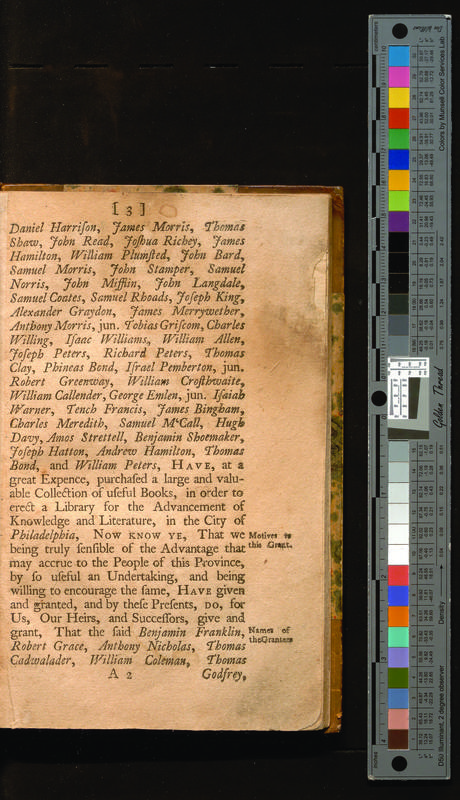 [ 3 ]
Daniel Harriſon, James Morris, Thomas
Shaw, John Read, Joſhua Richey, James
Hamilton, William Plumſted, John Bard,
Samuel Morris, John Stamper, Samuel
Norris, John Mifflin, John Langdale,
Samuel Coates, Samuel Rhoads, Joſeph King,
Alexander Graydon, James Merrywether,
Anthony Morris, jun. Tobias Griſcom, Charles
Willing, Iſaac Williams, William Allen,
Joſeph Peters, Richard Peters, Thomas
Clay, Phineas Bond, Iſrael Pemberton, jun.
Robert Greenway, William Croſthwaite,
William Callender, George Emlen, jun. Iſaiah
Warner, Tench Francis, James Bingham,
Charles Meredith, Samuel M'Call, Hugh
Davy, Amos Strettell, Benjamin Shoemaker,
Joſeph Hatton, Andrew Hamilton, Thomas
Bond, and William Peters, HAVE, at a
great Expence, purchaſed a large and valu-
able Collection of uſeful Books, in order to
erect a Library for the Advancement of
Knowledge and Literature, in the City of
Philadelphia, NOW KNOW YE, That we
being truly ſenſible of the Advantage that
may accrue to the People of this Province,
by ſo uſeful an Undertaking, and being
willing to encourage the ſame, HAVE given
and granted, and by theſe Preſents, DO, for
Us, Our Heirs, and Succeſſors, give and
grant, That the ſaid Benjamin Franklin,
Robert Grace, Anthony Nicholas, Thomas
Cadwalader, William Coleman, Thomas
A 2 Godfrey,
Motives to
this Grant.
Names of
the Grantees
centimeters
Colors by Munsell Color Services Lab
Golden Thread
Density
D50 Illuminant, 2 degree observer
inches